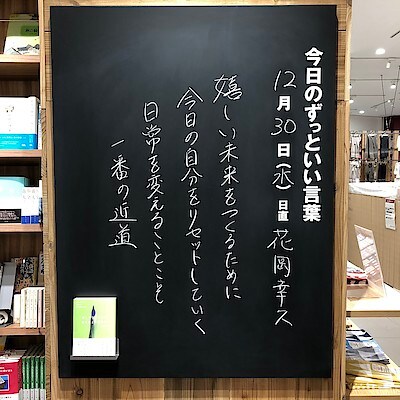 今日のずっといい言葉
12月30日(水) 日直 花岡幸ス
嬉しい未来をつくるために
今日の自分をリセットしていく
日常を変えることこそ
一番の近道